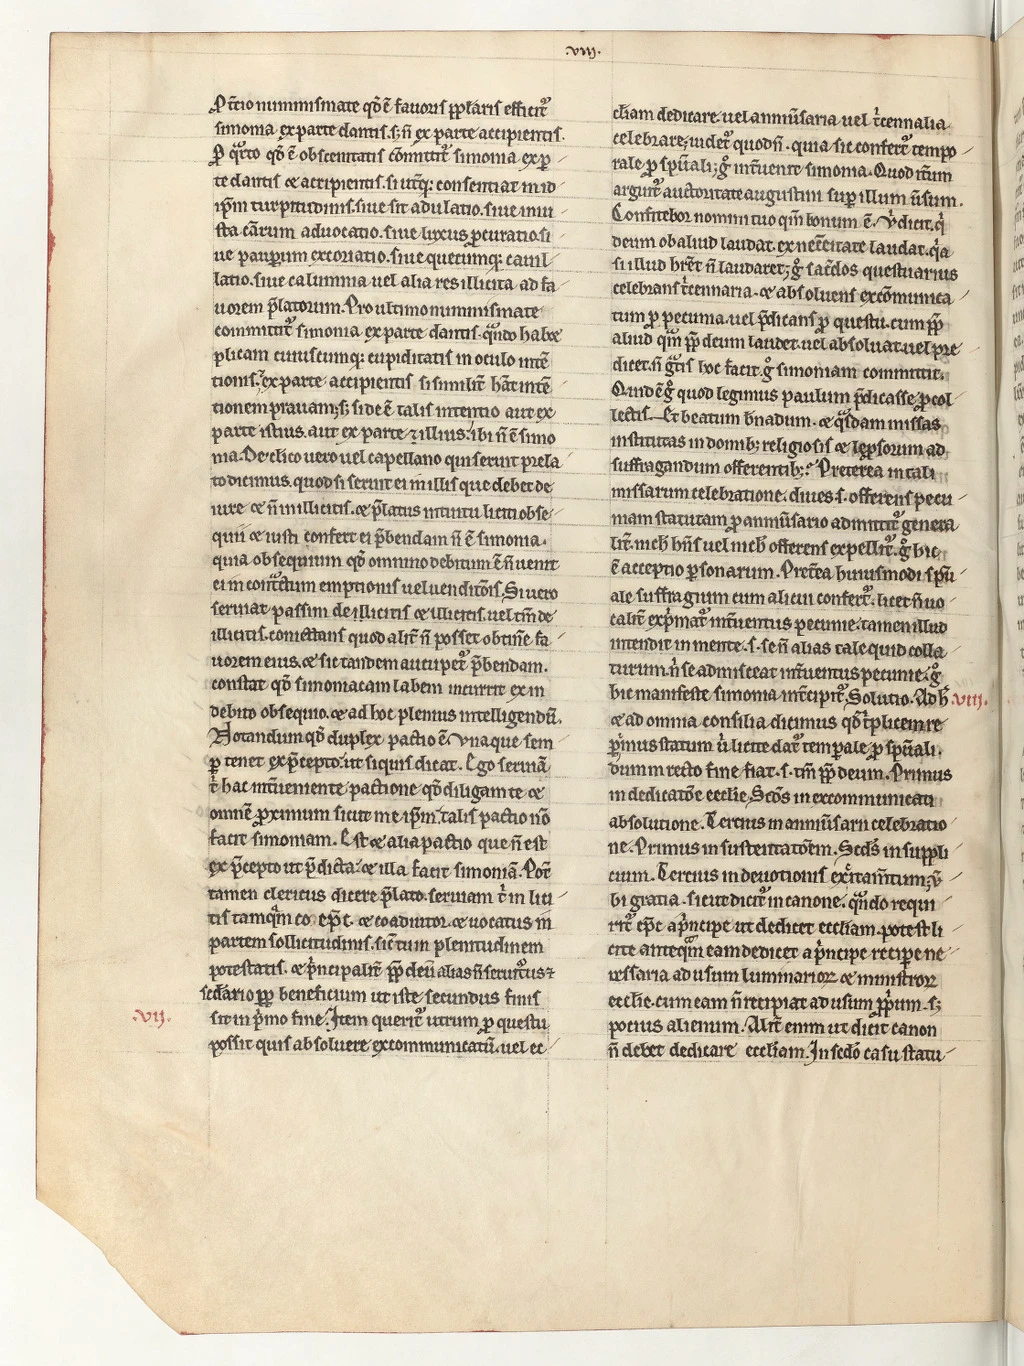 .viij.
P t̄cio nummismate qḋ ē fauoris ꝓplaris efficit᷑
simonia ex parte dantis. s; n̄ ex parte accipientis.
P q̄rto qḋ ē obscenitatis cōmittit᷑ simonia ex ꝑ
te dantis ⁊ accipientis. si ut̄q; consentiat in id
ip̄m turpitudinis. siue sit adulatio. siue iniu
sta cārum aduocatio. siue luxus ꝓcuratio. si
ue pauꝑum excoriatio. siue quecumq; cauil
latio. siue calumnia uel alia res illicita ad fa
uorem p̄latorum. Pro ultimo nummismate
committit᷑ simonia ex parte dantis. qn̄do habet
plicam cuiuscumq; cupiditatis in oculo intē
tionis. ex parte accipientis si similit̄ hāt intē
tionem prauam; s; si deē talis intentio aut ex
parte istius. aut ex parte illius: ibi n̄ ē simo
nia. De clico uero uel capellano qui seruit prela
to dicimus. quod si seruit ei in illis que debet de
iure ⁊ n̄ in illicitis. ⁊ p̄latus intuitu liciti obse
quii ⁊ iusti confert ei p̄bendam n̄ ē simonia.
quia obsequium qḋ omnino debitum ē n̄ uenit
ei in cont̄ctum emptionis uel uenditōis. Si uero
seruiat passim de illicitis ⁊ illicitis. uel tm̄ de
illicitis. coniectans quod alit̄ n̄ posset obtinē fa
uorem eius. ⁊ sic tandem aucupet᷑ p̄bendam.
constat qḋ simoniacam labem incurrit ex in
debito obsequio. ⁊ ad hoc plenius intelligendū.
Notandum qḋ duplex pactio ē. Vna que sem
ꝑ tenet ex p̄cepto. ut si quis dicat. Ego seruiā
t̄ hac int̄ueniente pactione qḋ diligam te ⁊
omnē ꝓximum sicut me ip̄m. talis pactio nō
facit simoniam. Est ⁊ alia pactio que n̄ est
ex p̄cepto ut p̄dicta: ⁊ illa facit simoniā. Pot̄
tamen clericus dicere p̄lato. seruiam t̄ in lici
tis tamqm̄ co. ep̄c. ⁊ coadiutor. ⁊ uocatus in
partem sollicitudinis. sic̄ tum plenitudinem
potestatis. ⁊ p̄ncipalit̄ ꝓpt̄ deū alias n̄ seruit᷑us ⁊
secd̄ario ꝓpt̄ beneficium ut iste secundus finis
.vij. sit in p̄mo fine. Item querit᷑ utrum ꝓ questu
possit quis absoluere excommunicatū. uel ec
cl̄iam dedicare uel anniu͛saria uel t̄cennalia
celebrare; uidet᷑ quod n̄. quia sic confert᷑ tempo
rale ꝓ sp̄uali; ḡ int̄uenit simonia. Quod iteȓum
arguit᷑ auctoritate augustini suꝑ illum ūsum.
Confitebor nomini tuo qm̄ bonum ē. V̄ dicit. q̇
deum ob aliud laudat. ex neccēitate laudat. q̇a
si illud hr̄et n̄ laudaret; ḡ sac̄dos questuarius
celebrans t̄cennaria. ⁊ absoluens excōmunica
tum ꝓ pecunia. uel p̄dicans ꝓ questu. cum ꝓpt̄
aliud qm̄ ꝓpt̄ deum laudet. uel absoluat. uel pre
dicet. n̄ gr̄tis hoc facit. ḡ simoniam committit.
Quid ē ḡ quod legimus paulum p̄dicasse ꝓ col
lectis. Et beatum b̄nadum. ⁊ qsdam missas
institutas in domib; religiosis ⁊ leꝓsorum ad
suffragandum offerentib;? Preterea in tali
missarum celebratione. diues. s. offerens pecu
niam statutam ꝓ anniūsario admittit᷑ genera
lit̄. nich̄ hn̄s uel nich̄ offerens expellit᷑. ḡ hic
ē acceptio ꝑsonarum. Pret̄ea huiusmodi sp̄u
ale suffragium cum alicui confert᷑: licet n̄ uo
calit̄ exp̄mat᷑ int̄uentus pecunie: tamen illud
intendit in mente. s. se n̄ alias tale quid colla
turum. n̄ se admisceat int̄uentus pecunie. ḡ
hic manifeste simonia int̄cipit᷑. Solutio. Ad h̄ .viij.
⁊ ad omnia consilia dicimus qḋ t̄plicem re
p̄imus statum u̇ licite dat᷑ temꝑale ꝓ sp̄uali.
dum m recto fine fiat. s. tm̄ ꝓpt̄ deum. Primus
in dedicatōe ecclie. Scds in excommunicati
absolutione. Tercius in anniūsarii celebratio
ne. Primus in sustentatōem. Scds in suppli
cium. Tercius in deuotionis exc̄itam̄tum; v̄
bi gratia. sicut dicit᷑ in canone. qn̄do requi
rit᷑ ep̄c a p̄ncipe ut dedicet eccl̄iam. potest li
cite anteqm̄ eam dedicet a p̄ncipe recipe ne
cessaria ad usum luminarioꝝ ⁊ ministroꝝ
ecclie. cum eam n̄ recipiat ad usum ꝓprium. s;
pocius alienum. Alit̄ enim ut dicit canon
n̄ debet dedicare eccl̄iam. In scdo casu statu